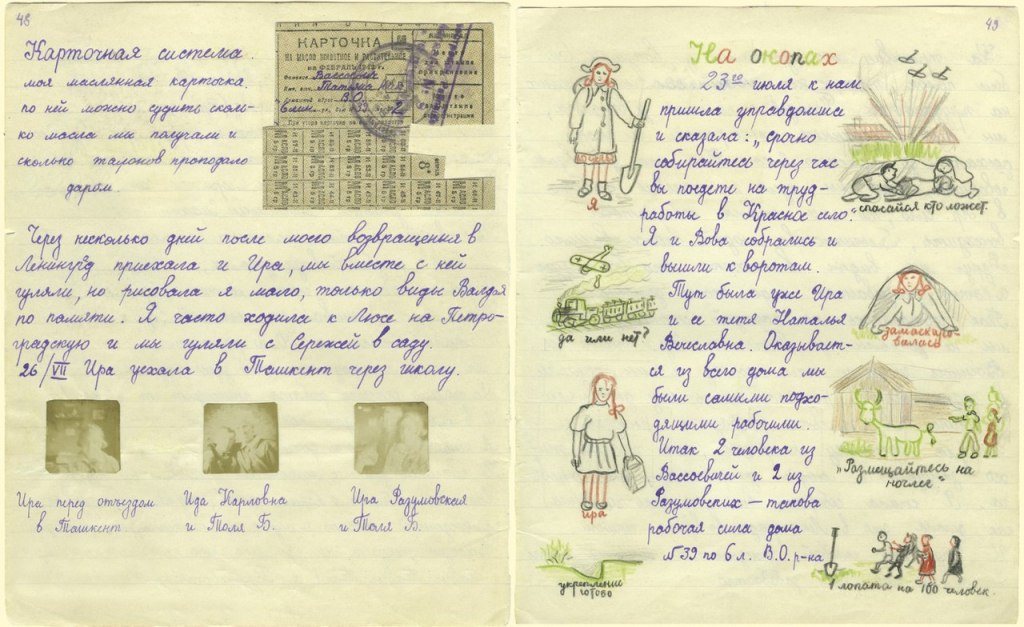 48
Карточная система.
моя маслянная карточка.
по ней можно судить сколь-
ко масла мы получали и
сколько талонов пропадало
даром.
КАРТОЧКА
НА МАСЛО ЖИВОТНОЕ И РАСТИТЕЛЬНОЕ
Вассоевич
Татьяна
В.О.
Через несколько дней после моего возвращения в
Ленинград приехала и Ира, мы вместе с ней
гуляли, но рисовала я мало, только виды Валдая
по памяти. Я часто ходила к Люсе на Петро-
градскую и мы гуляли с Сережей в саду.
26/VII Ира уехала в Ташкент через школу.
Ира перед отъездом
в Ташкент
Ида Карловна
и Толя Б.
Ира Разумовская
и Толя Б.
49
На окопах
23го июля к нам
пришла управдомша
и сказала: „срочно
собирайтесь через час
вы поедете на труд-
работы в Красное село."
Я и Вова собрались и
вышли к воротам.
Тут была уже Ира
и ее тетя Наталья
Вечеславна. Оказывает-
ся из всего дома мы
были самыми подхо-
дящими рабочими.
Итак 2 человека из
Вассоевичей и 2 из
Разумовских — такова
рабочая сила дома
№39 по 6 л. В.О. р-на
Я
да или нет?
ира
укрепление
готово
„спасайся кто может"
замаскиро-
валась
„Размещайтесь на
ночлег"
1 лопата на 100 человек.